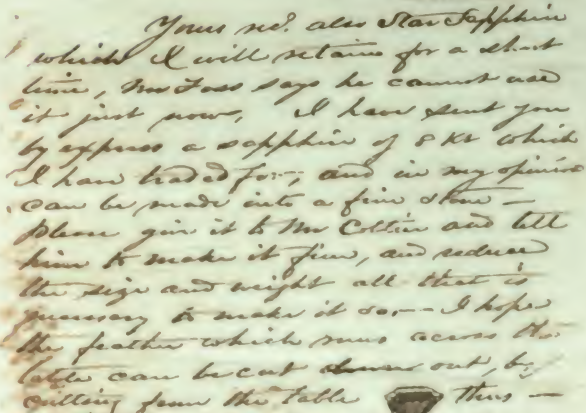 Yours recd. also Star Sapphire
which I will retain for a short
time, Mr Foss says he cannot use
it just now, I have sent you
by express a sapphire of 8 Kt which
I have traded for, and in my opinion
can be made into a fine stone —
please give it to Mr Cottier and tell
him to make it fine, and reduce
the size and weight all that is
necessary to make it so — I hope
the feather which runs across the
table can be cut out, by
cutting from the table thus —